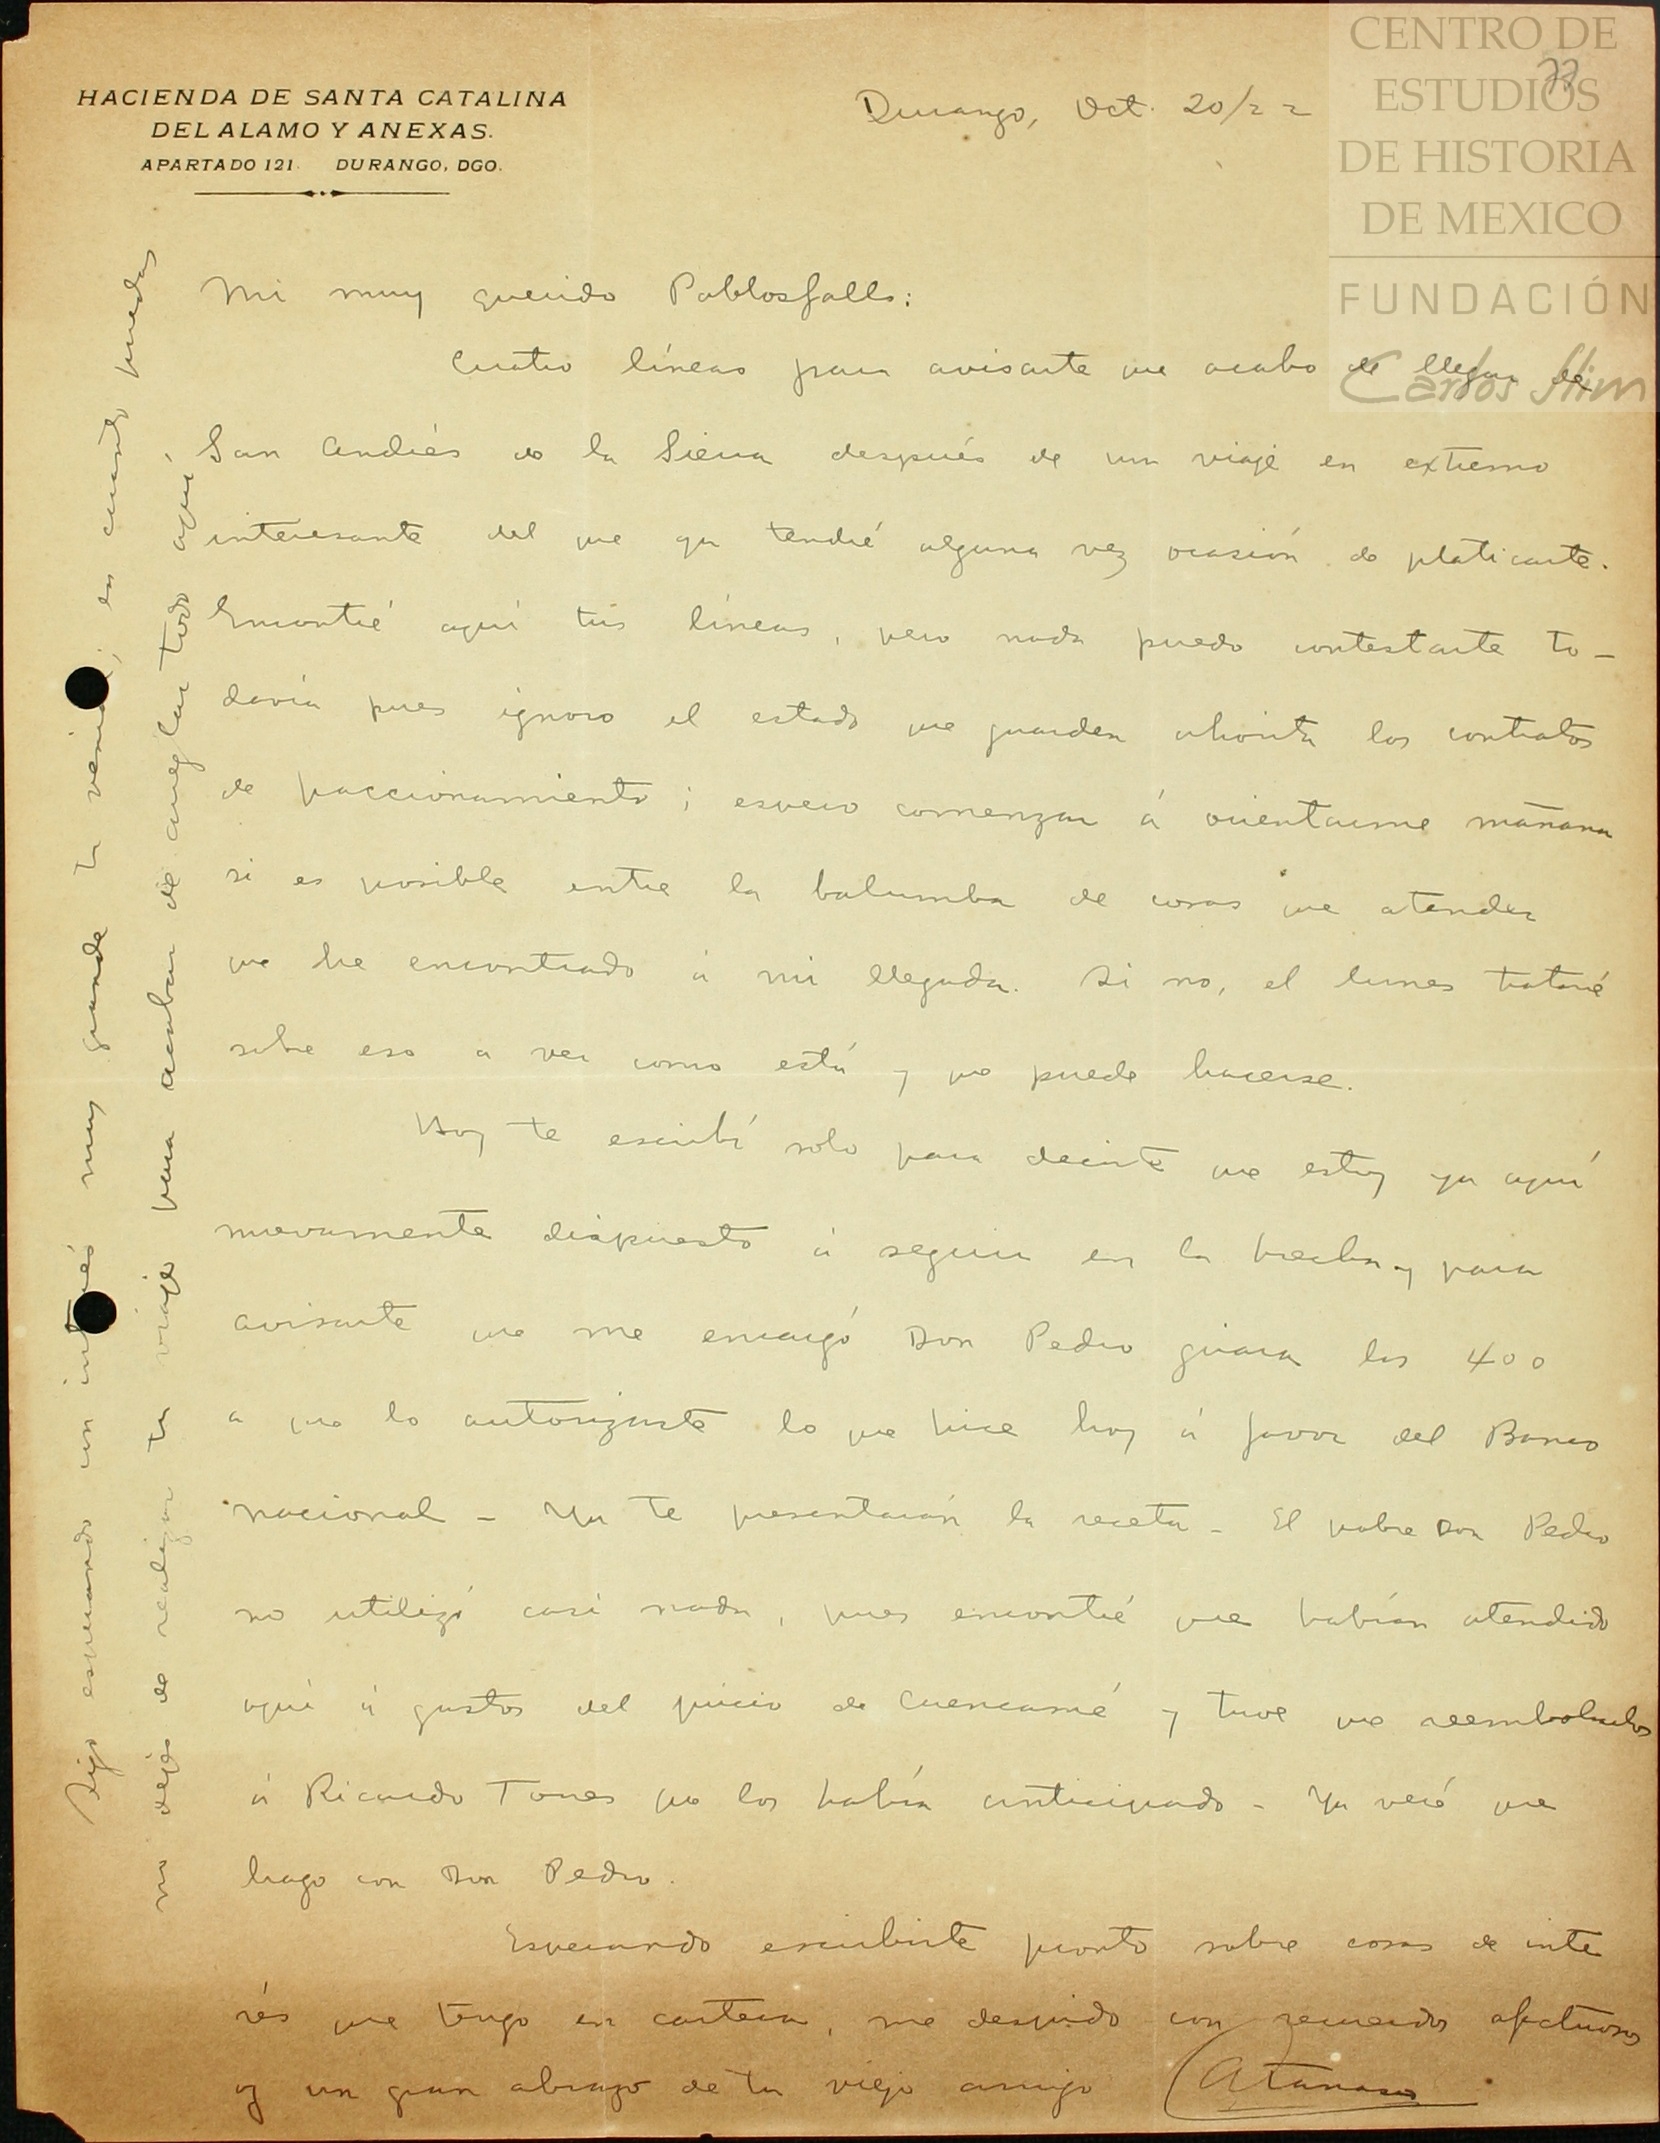 HACIENDA DE SANTA CATALINA
DEL ALAMO Y ANEXAS.
APARTADO 121. DURANGO, DGO.
Durango, Oct. 20/22
77
CENTRO DE
ESTUDIOS
DE HISTORIA
DE MEXICO
FUNDACIÓN
Carlos Slim
Mi muy querido Pablosgalls:
Cuatro líneas para avisarte que acabo de llegar de
San Andrés de la Sierra después de un viaje en extremo
interesante del que ya tendré alguna vez ocasión de platicarte.
Encontré aquí tus líneas, pero nada puedo contestarte to-
davía pues ignoro el estado que guarden ahorita los contratos
de fraccionamiento; espero comenzar á orientarme mañana
si es posible entre la balumba de cosas que atender
que he encontrado á mi llegada. Si no, el lunes trataré
sobre eso a ver como está y que puede hacerse.
Hoy te escribí solo para decirte que estoy ya aquí
nuevamente dispuesto á seguir en la brecha y para
avisarte que me encargó Don Pedro girara los 400
a que lo autorizaste lo que hice hoy á favor del Banco
nacional - Ya te presentarán la receta - El pobre Don Pedro
no utilizó casi nada, pues encontré que habían atendido
aquí á gastos del juicio de Cuencamé y tuve que reembolsarlos
á Ricardo Torres que los había anticipado - Ya veré que
hago con Don Pedro.
Esperando escribirte pronto sobre cosas de inte
rés que tengo en cartera, me despido con recuerdos afectuosos
y un gran abrazo de tu viejo amigo Atanasio
Sigo esperando un interés muy grande tu venida, en cuanto puedas
no dejes de realizar tu viaje para acabar de arreglar todo aquí